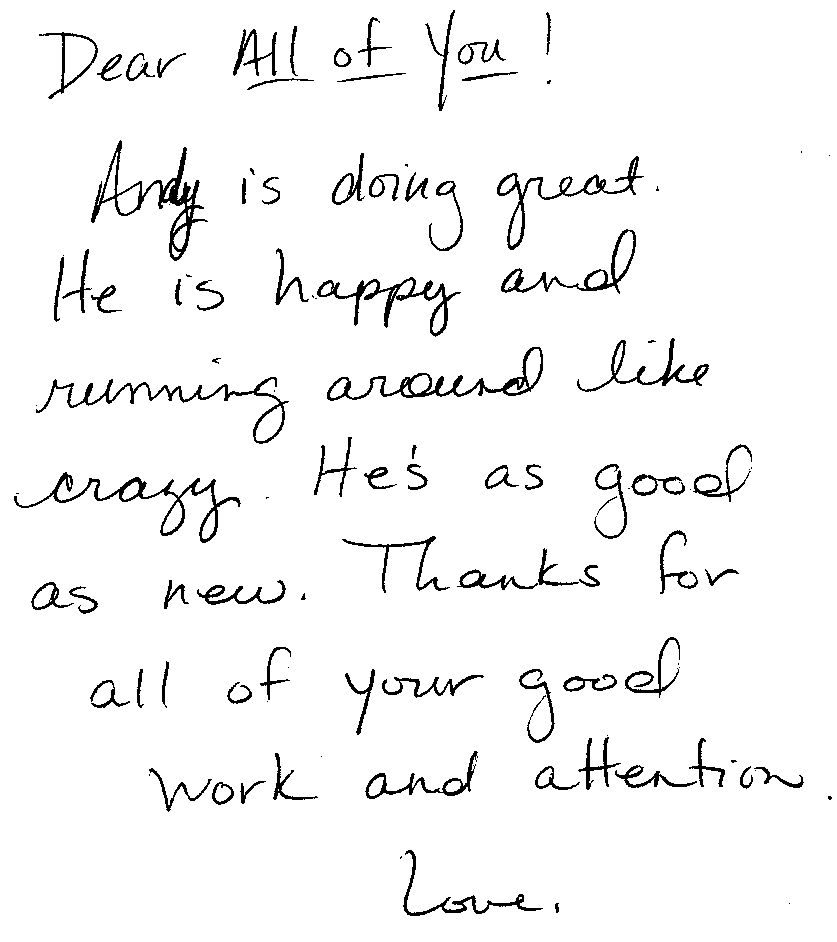 Dear All of You!
Andy is doing great.
He is happy and
running around like
crazy. He's as good
as new. Thanks for
all of your good
work and attention.
Love,